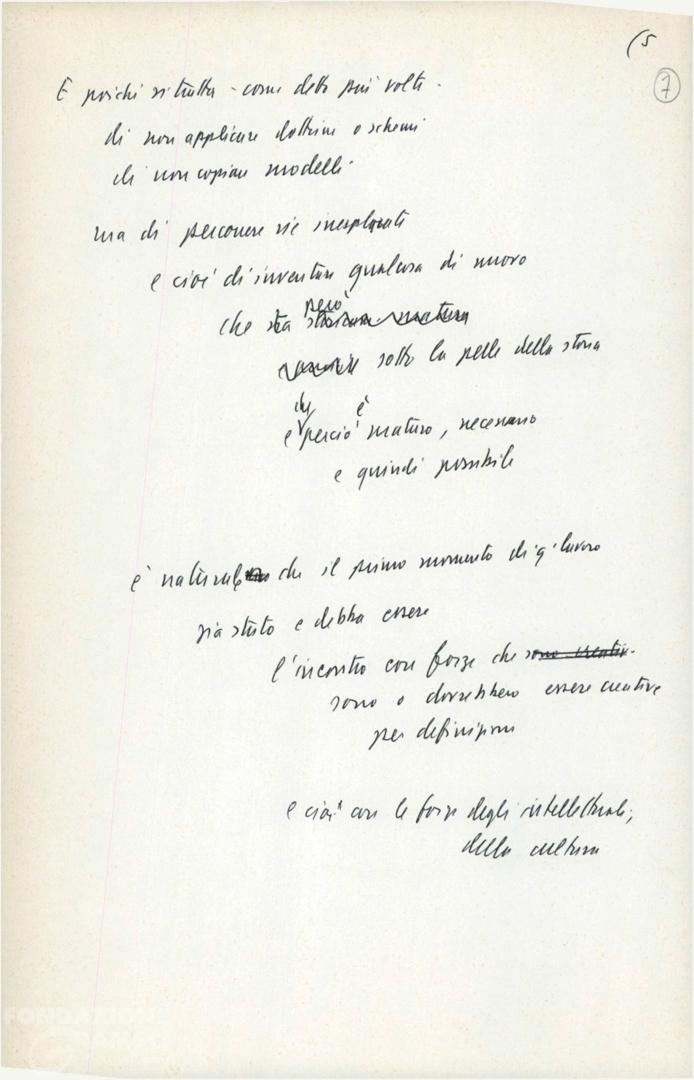 (5
7
E poiché si tratta - come detto più volte -
di non applicare dottrine o schemi
di non copiare modelli
ma di percorrere vie inesplorate
e cioè di inventare qualcosa di nuovo
però
che sta
sotto la pelle della storia
che è
e perciò maturo, necessario
e quindi possibile
è naturale che il primo momento di q. lavoro
sia stato e debba essere
l'incontro con forze che sono creativ-
sono o dovrebbero essere creative
per definizione
e cioè con le forze degli intellettuali,
della cultura
FONDAZIONE